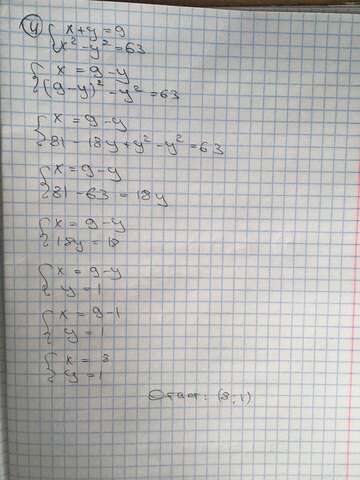 4) { x + y = 9
x² - y² = 63
{ x = 9 - y
(9 - y)² - y² = 63
{ x = 9 - y
81 - 18y + y² - y² = 63
{ x = 9 - y
81 - 63 = 18y
{ x = 9 - y
18y = 18
{ x = 9 - y
y = 1
{ x = 9 - 1
y = 1
{ x = 8
y = 1
Ответ: (8; 1)